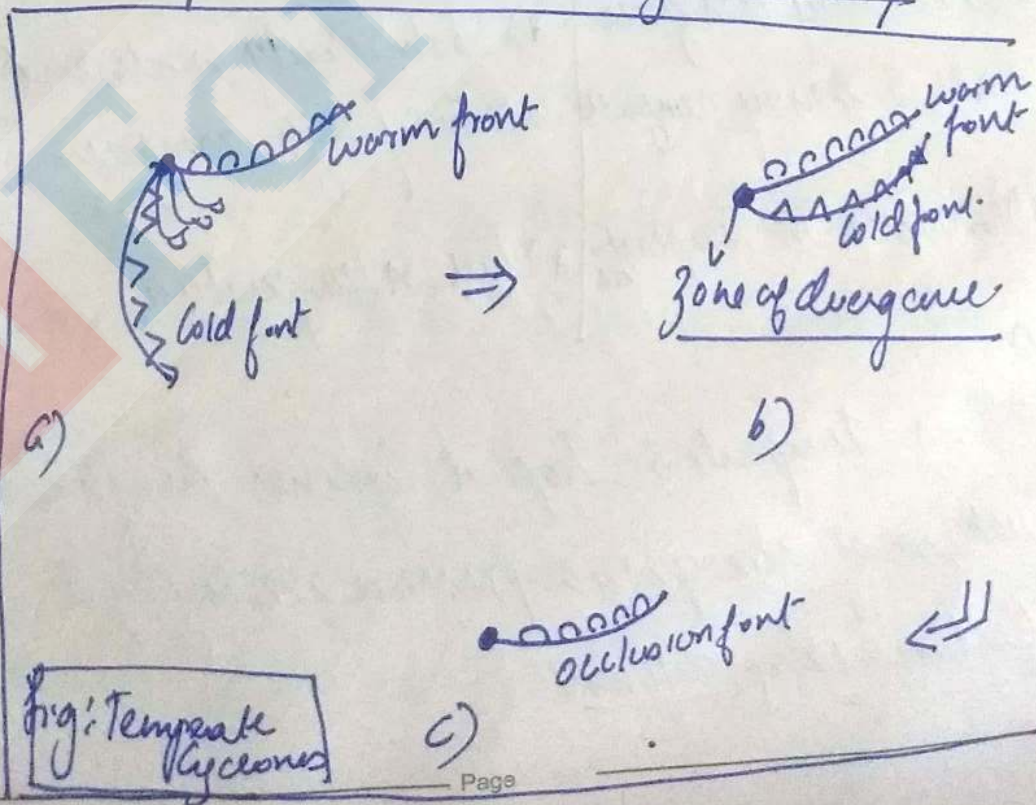 warm front
Cold font
a)
warm
font
Cold font.
Zone of divergence
b)
occlusion font
c)
fig: Temperate
Cyclones
Page